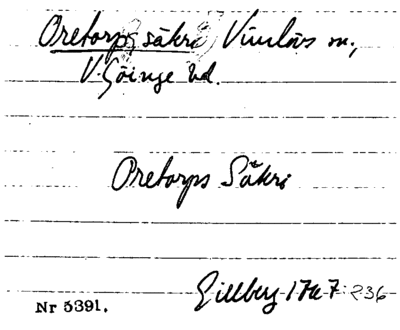 Oretorps säkri Vinslövs sn.,
V. Göinge hd.
Oretorps Säkri
Gillberg 1767: 236
Nr 5391.